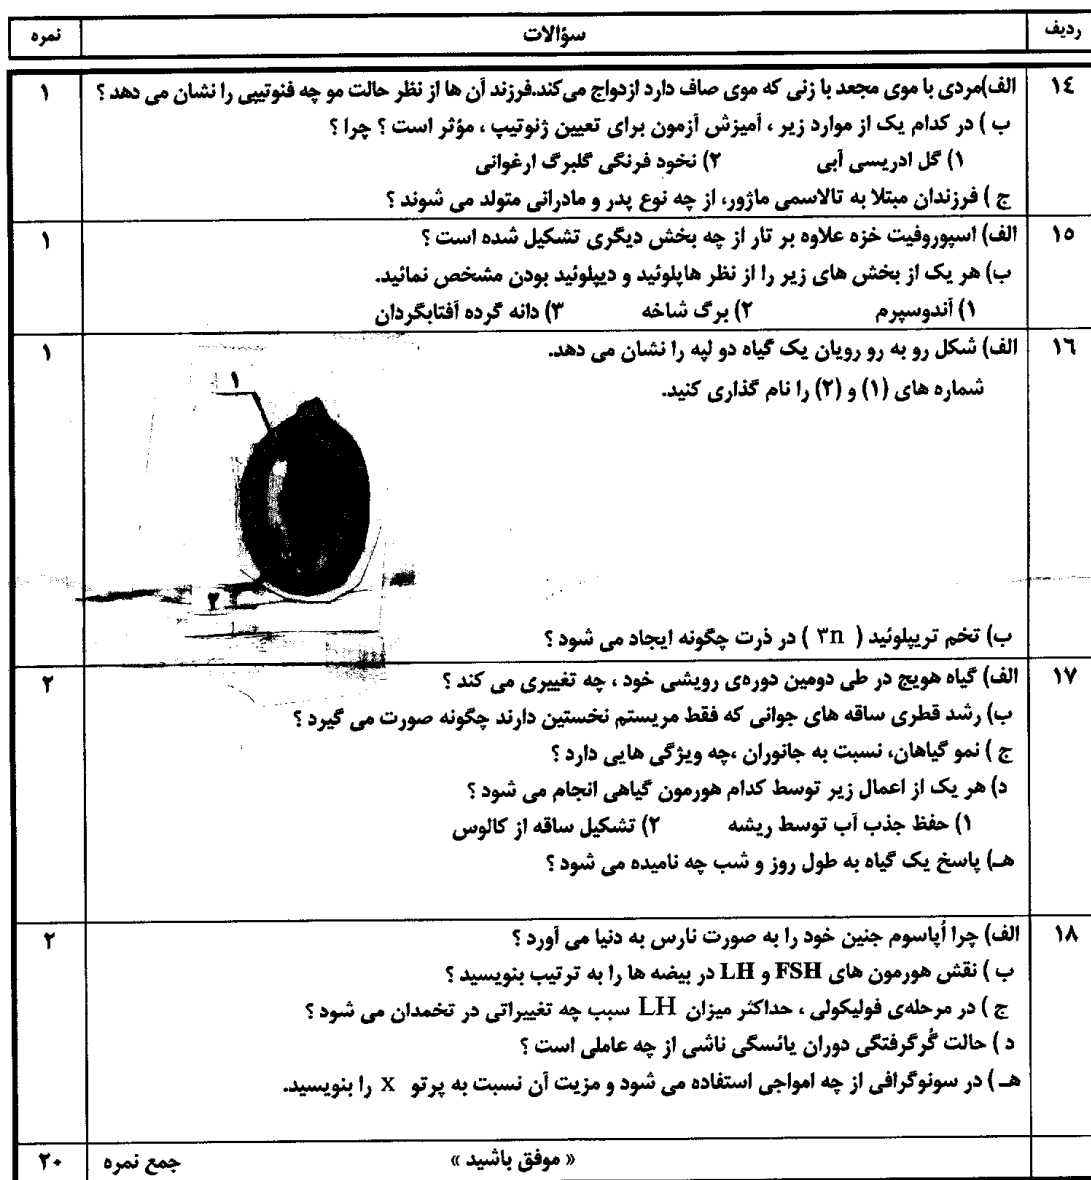 ردیف سؤالات نمره
١٤ الف)مردی با موی مجعد با زنی که موی صاف دارد ازدواج می‌کند.فرزند آن ها از نظر حالت مو چه فنوتیپی را نشان می دهد ؟ ١
ب ) در کدام یک از موارد زیر ، آمیزش آزمون برای تعیین ژنوتیپ ، مؤثر است ؟ چرا ؟
١) گل ادریسی آبی ٢) نخود فرنگی گلبرگ ارغوانی
ج ) فرزندان مبتلا به تالاسمی ماژور، از چه نوع پدر و مادرانی متولد می شوند ؟
١٥ الف) اسپوروفیت خزه علاوه بر تار از چه بخش دیگری تشکیل شده است ؟ ١
ب) هر یک از بخش های زیر را از نظر هاپلوئید و دیپلوئید بودن مشخص نمائید.
١) آندوسپرم ٢) برگ شاخه ٣) دانه گرده آفتابگردان
١٦ الف) شکل رو به رو رویان یک گیاه دو لپه را نشان می دهد. ١
شماره های (١) و (٢) را نام گذاری کنید.
١
٢
ب) تخم تریپلوئید ( ٣n ) در ذرت چگونه ایجاد می شود ؟
١٧ الف) گیاه هویج در طی دومین دوره‌ی رویشی خود ، چه تغییری می کند ؟ ٢
ب) رشد قطری ساقه های جوانی که فقط مریستم نخستین دارند چگونه صورت می گیرد ؟
ج ) نمو گیاهان، نسبت به جانوران ،چه ویژگی هایی دارد ؟
د) هر یک از اعمال زیر توسط کدام هورمون گیاهی انجام می شود ؟
١) حفظ جذب آب توسط ریشه ٢) تشکیل ساقه از کالوس
هـ) پاسخ یک گیاه به طول روز و شب چه نامیده می شود ؟
١٨ الف) چرا اُپاسوم جنین خود را به صورت نارس به دنیا می آورد ؟ ٢
ب ) نقش هورمون های FSH و LH در بیضه ها را به ترتیب بنویسید ؟
ج ) در مرحله‌ی فولیکولی ، حداکثر میزان LH سبب چه تغییراتی در تخمدان می شود ؟
د ) حالت گُرگرفتگی دوران یائسگی ناشی از چه عاملی است ؟
هـ ) در سونوگرافی از چه امواجی استفاده می شود و مزیت آن نسبت به پرتو x را بنویسید.
« موفق باشید » جمع نمره ٢٠